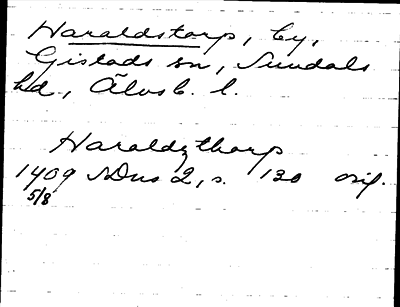 Haraldstorp, by,
Gestads sn, Sundals
hd, Älvsb. l.
Haraldzthorp
1409 NDns 2, s. 130 orig.
5/8